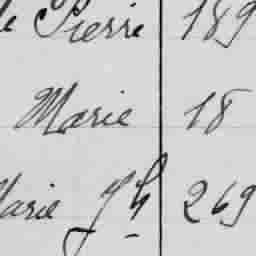 de Pierre 189
Marie 18
Marie Jh 269